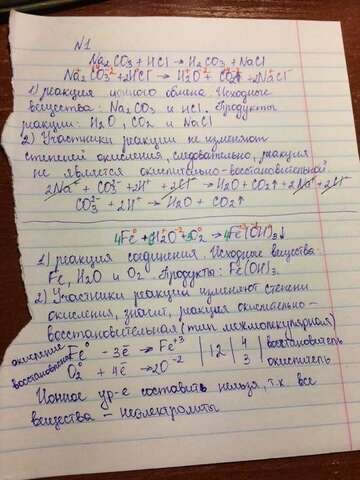 №1
Na2CO3 + HCl → H2CO3 + NaCl
Na2CO3 + 2HCl → H2O + CO2↑ + 2NaCl
1) реакция ионного обмена. Исходные
вещества: Na2CO3 и HCl. Продукты
реакции: H2O, CO2 и NaCl
2) Участники реакции не изменяют
степеней окисления, следовательно, реакция
не является окислительно-восстановительной
2Na+ + CO3²- + 2H+ + 2Cl- → H2O + CO2↑ + 2Na+ + 2Cl-
CO3²- + 2H+ → H2O + CO2↑
4Fe + 6H2O + 3O2 → 4Fe(OH)3↓
1) реакция соединения. Исходные вещества:
Fe, H2O и O2. Продукты: Fe(OH)3.
2) Участники реакции изменяют степени
окисления, значит, реакция окислительно-
восстановительная (тип межмолекулярная)
окисление Fe⁰ - 3ē → Fe+3 | 12 | 4 восстановитель
восстановление O2⁰ + 4ē → 2O-2 | 3 окислитель
Ионное ур-е составить нельзя, т.к. все
вещества - неэлектролиты